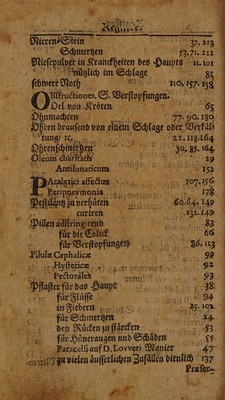 Register.
Nieren-Stein 37. 213
Schmertzen 53. 71. 212
Niesepulver in Kranckheiten des Haupts 11. 101
nützlich im Schlage 85
schwere Noth 210. 157. 158
Obstructiones. S. Verstopfungen.
Oel von Kröten 65
Ohnmachten 77. 90. 180
Ohren brausend von einem Schlage oder
tung/ ic. 22. 118. 164
Ohrenschmertzen 30. 85. 164
Oleum charitatis 29
Antilunaticum 152
Paralytici affectus 107. 156
Peripneumonia 178
Pestilentz zu verhüten 60. 64. 149
curiren 131. 149
Pillen adstringirend 83
für die Colick 66
für Verstopfungen 86. 113
Pilulæ Cephalicæ 99
Hystericæ 92
Pectorales 93
Pflaster für das Haupt 38
für Flüsse 94
in Fiebern 25. 102
für Schmertzen 24
den Rücken zu stärcken 53
für Hüneraugen und Schäden 55
Paracelsi auf D. Lovveri Manier 47
zu vielen äusserlichen Zufällen dienlich 137
Præser-